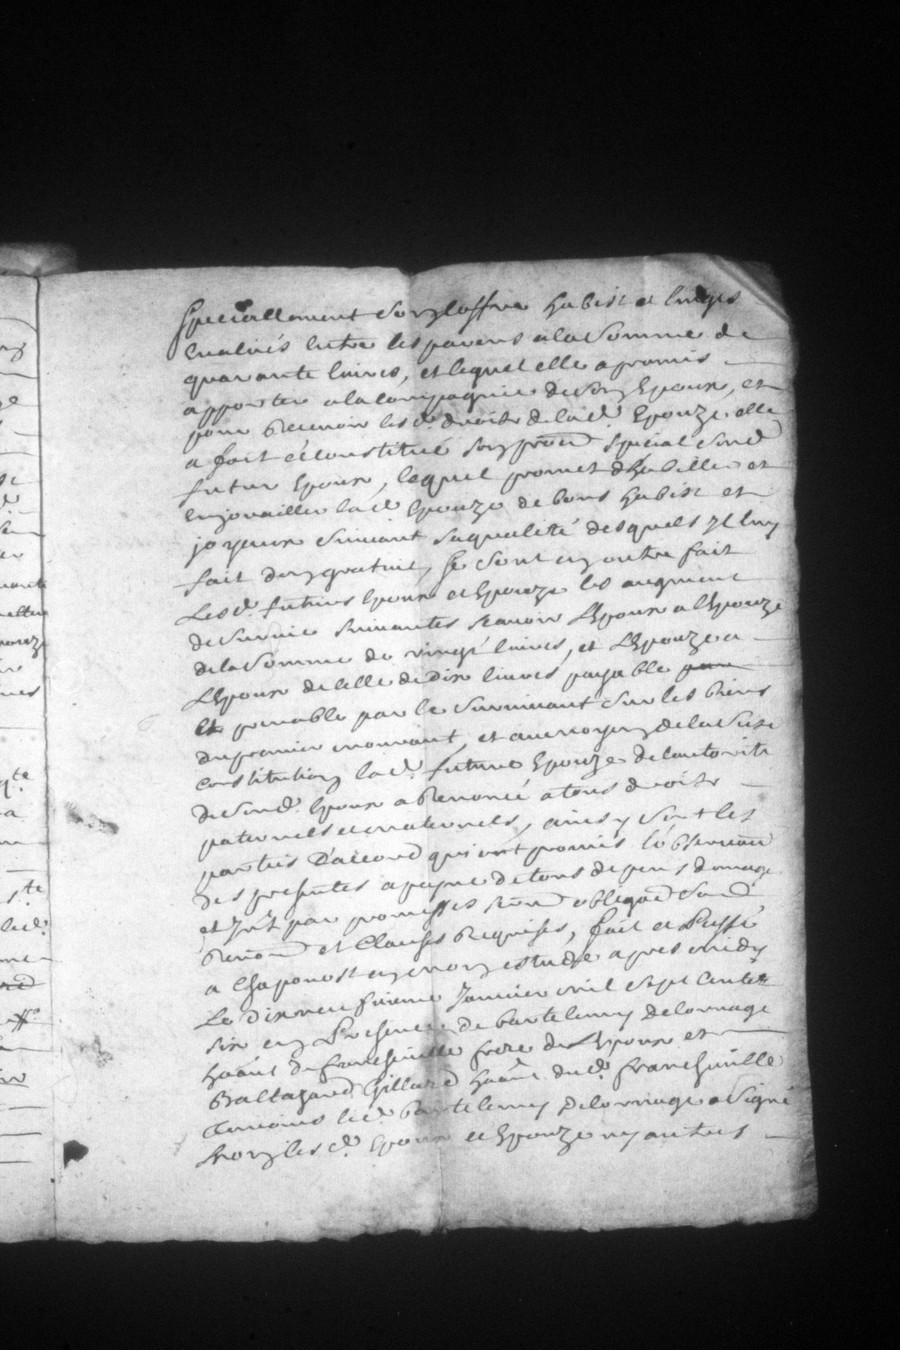 Speciallement son coffre habist et linges
Evalués entre les parens ala somme de
quarante livres, et lequel elle a promis
apporter ala compagnie de son Epoux, et
pour Recevoir lesd. droits de lad. Epouze elle
a fait et constitué son procu. special sond
futur Epoux, lequel promet d'habiller et
Enjoyailler lad. Epouze de bons habist et
joyaux suivant sa qualité desquels Il luy
fait don gratuit, se sont en outre fait
Lesd. futurs Epoux et Epouze les augment
de survie suivantes scavoir L'Epoux a L'Epouze
de la somme de vingt livres, et L'Epouze a
L'Epoux de celle de dix livres payable
et prenable par le survivant sur les biens
du premier mourant, et au moyen de la susd
constitution lad. future Epouze de l'autorité
de sond. Epoux a Renoncé a tous droits
paternels et maternels, ainsy sont les
parties d'accord qui ont promis l'observaon
des presentes a payne de tous depens domage
et Int par promesses serm obligaon
Renon et Clauses Requises, fait et Passé
a Chaponost en mon estude apres midy
Le dixneufvieme Janvier mil sept cents
six en Presence de bartelemy Delornage
habant de francheville frere de L'Epoux et
Baltazard Gillard habant dud. francheville
temoins led. Bartelemy Delornage a signé
Non lesd. Epoux et Epouze ny autres